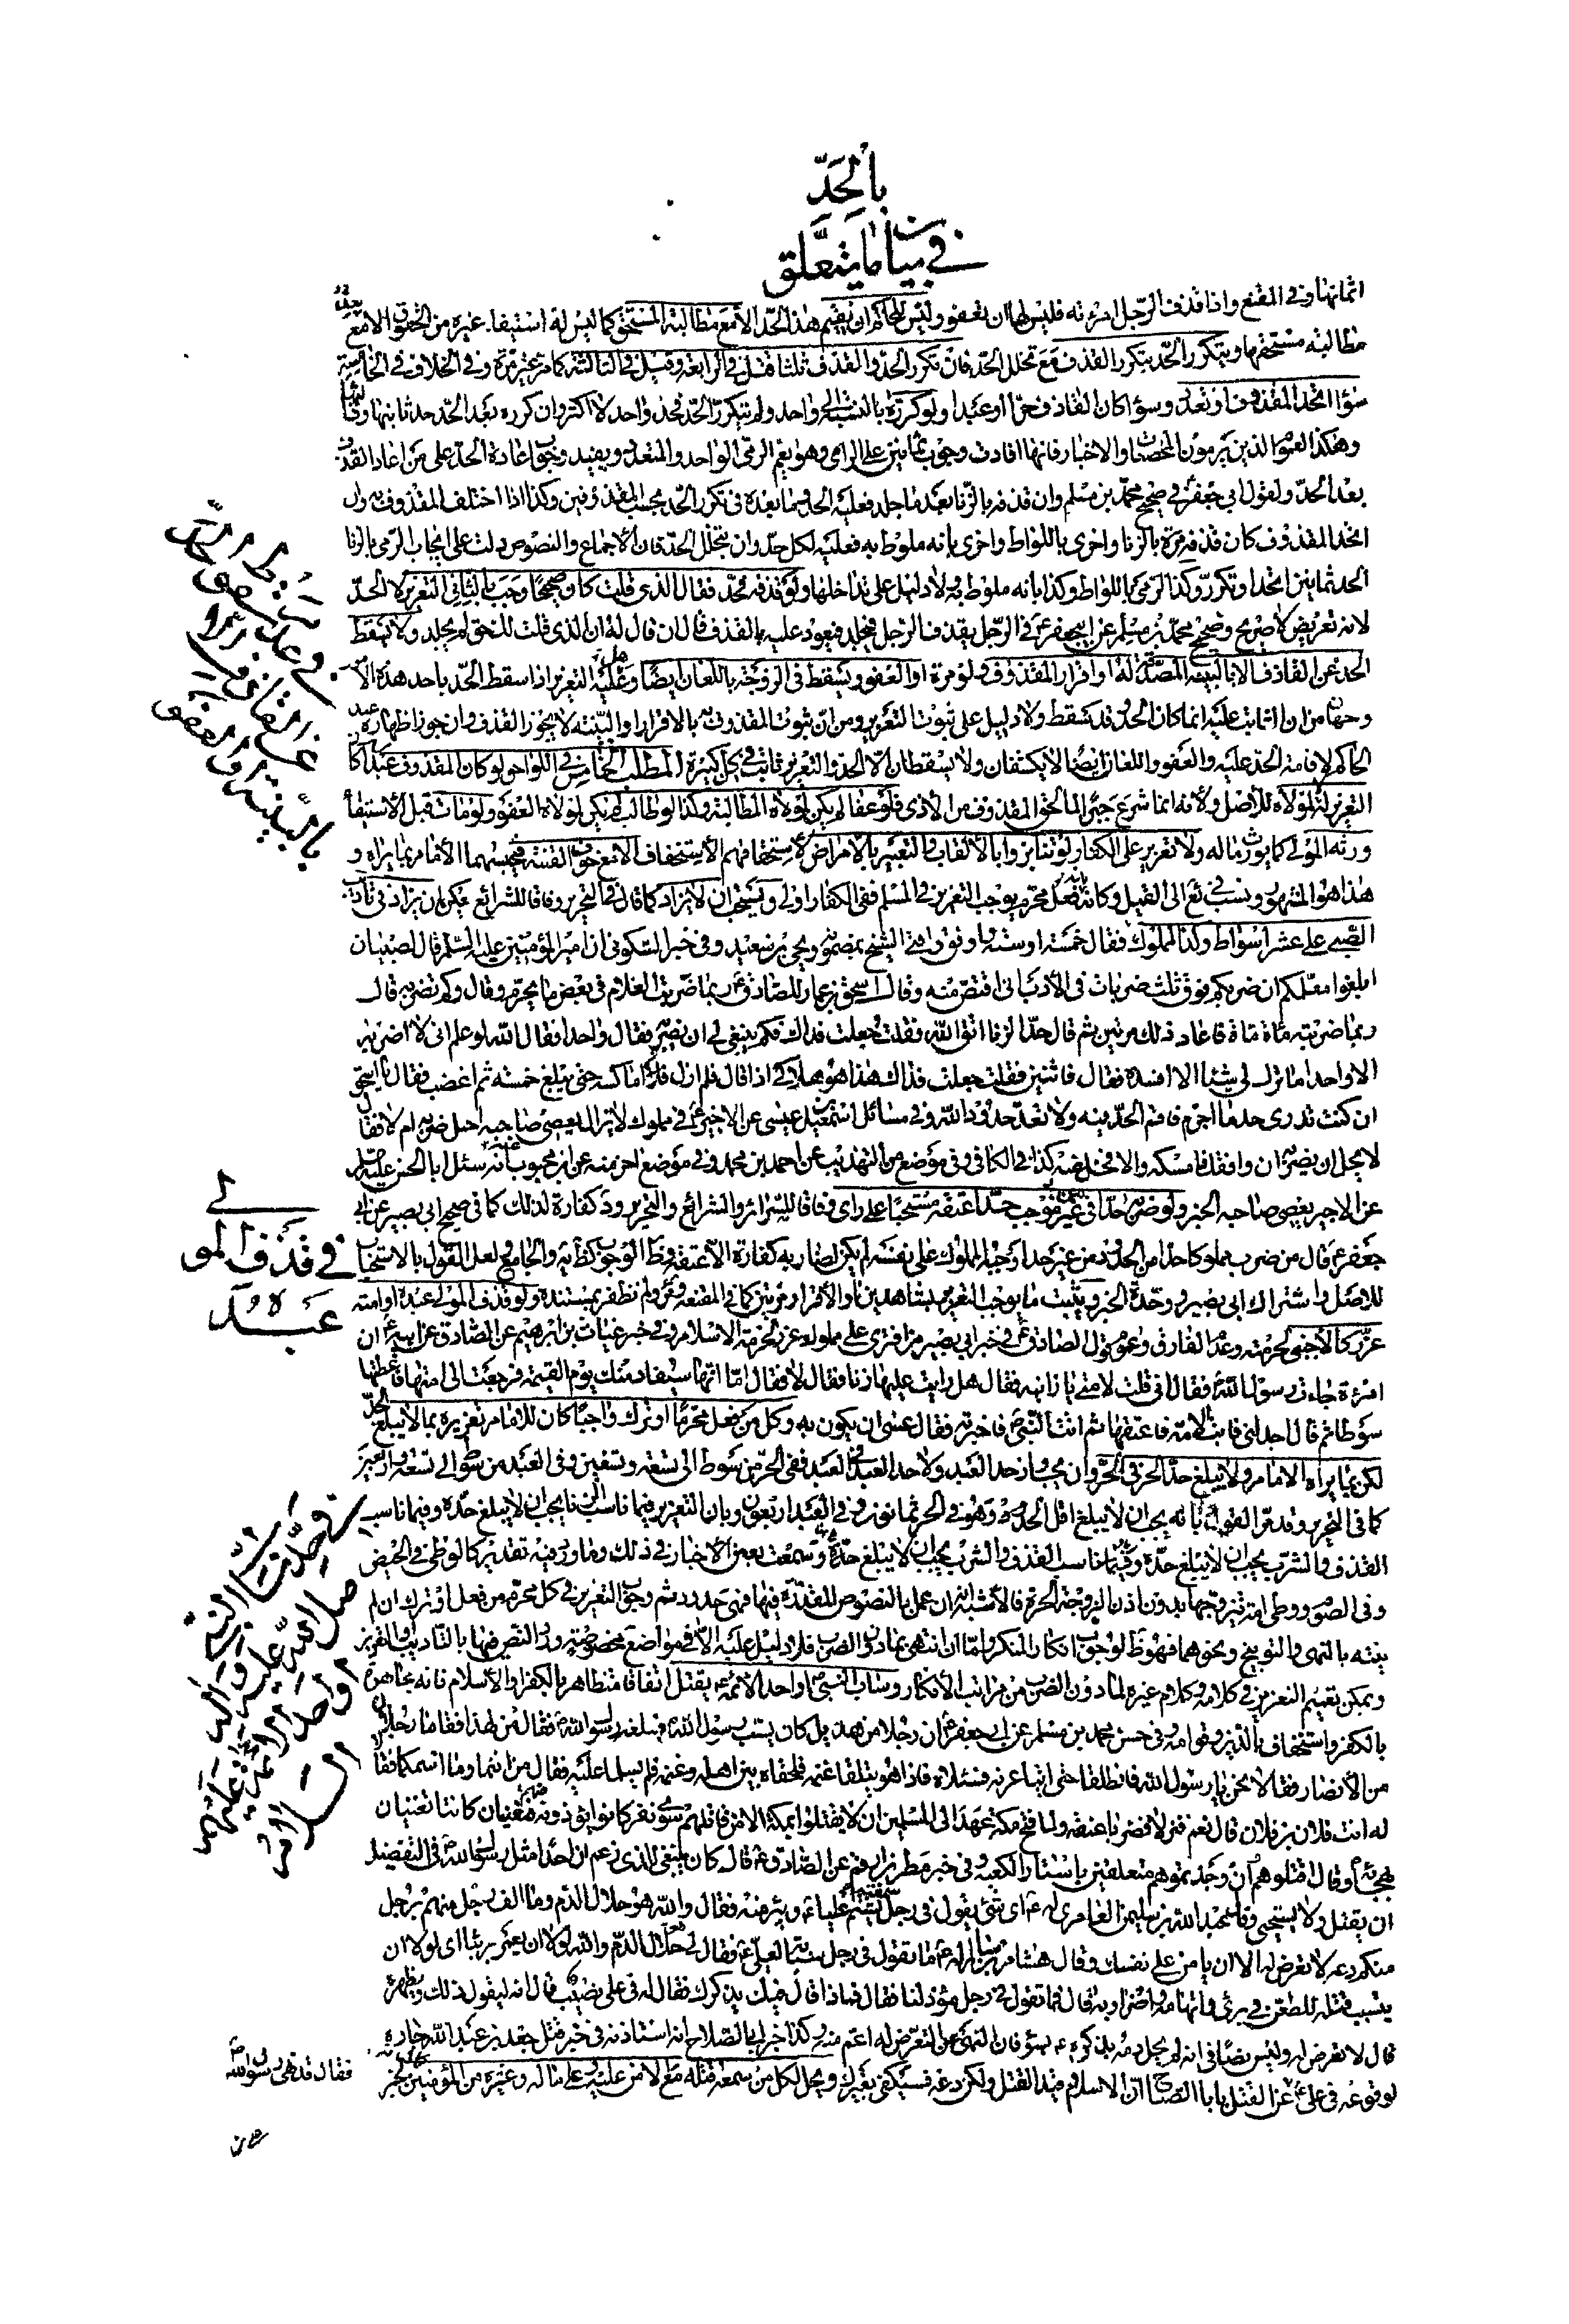 في بيان ما يتعلق
بالحد
اثباتها وفى المقنع واذا قذف الرجل امرئته فليس لها ان تعفو وليس للحاكم ان يقيم هذا الحد الا مع مطالبة المستحق كما ليس له استيفاء غيره من الحقوق الا مع
مطالبة مستحقها ويتكرر الحد بتكرر القذف مع تخلل الحد فان تكرر الحد والقذف ثلثا قتل في الرابعة وقيل في الثالثة كما مر غير مرة وفى الخلاف في الخامسة
سواء اتحد المقذوف او تعدد وسواء كان القاذف حرا او عبدا ولو كرره بالنسبة الى واحد ولم يتكرر الحد فحد واحد لا اكثر وان كرره بعد الحد حد ثانيا
وهكذا لعموم الذين يرمون المحصنات والاخبار فانها افادت وجوب ثمانين على الرامي وهو يعم الرمي الواحد والمتعدد ويفيد وجوب اعادة الحد على من اعاد القذف
بعد الحد ولقول ابي جعفر في صحيح محمد بن مسلم وان قذفه بالزنا بعد ما جلد فعليه الحد وما بعده في تكرر الحد بحسب المقذوفين وكذا اذا اختلف المقذوف به وان
اتحد المقذوف كان قذفه مرة بالزنا واخرى باللواط واخرى بانه ملوط به فعليه لكل حد وان لم يتخلل الحد فان الاجماع والنصوص دلت على ايجاب الرمي بالزنا
الحد ثمانين اتحد او تكرر وكذا الرمي باللواط وكذا بانه ملوط به ولا دليل على تداخلها ولو قذفه فحد فقال الذي قلت كان صحيحا وجب بالثاني التعزير لا الحد
لانه تعريض لا صريح وصحيح محمد بن مسلم عن ابي جعفر في الرجل يقذف الرجل فيجلد فيعود عليه بالقذف قال ان قال له ان الذي قلت لك حق لم يجلد ولا يسقط
الحد عن القاذف الا بالبينة المصدقة له او اقرار المقذوف ولو مرة او العفو ويسقط في الزوجة باللعان ايضا وهل عليه التعزير اذا سقط الحد باحد هذه
وجهان من ان الثابت عليه انما كان الحد وقد سقط ولا دليل على ثبوت التعزير ومن ان ثبوت المقذوف به بالاقرار او البينة لا يجوز القذف وان جوز اظهاره عند
الحاكم لاقامة الحد عليه والعفو واللعان ايضا لا يكشفان ولا يسقطان الا الحد والتعزير ثابت في كل كبيرة المطلب الخامس في اللواحق لو كان المقذوف عبدا كان
التعزير له لا لمولاه للاصل ولانه انما شرع جبرا لما لحق المقذوف من الاذى فلو عفا لم يكن لمولاه المطالبة وكذا لو طالب لم يكن لمولاه العفو ولو مات قبل الاستيفاء
ورثه المولى كما يورث ماله ولا تعزير على الكفار لو تنابزوا بالالقاب والتعيير بالامراض لاستحقاقهم الاستخفاف الا مع خوف الفتنة فيحسمها الامام بما يراه و
هذا هو المشهور ونسب في يع الى القيل وكانه فعل محرم يوجب التعزير في المسلم ففى الكفار اولى ويستحب ان لا يزاد كما قال في التحرير وفاقا للشرائع في تاديب
الصبي على عشرة اسواط وكذا المملوك فقال خمسة او ستة وارفق وافتى الشيخ بمضمونه ويحيى بن سعيد وفى خبر السكوني ان امير المؤمنين عليه السلم قال لصبيان
ابلغوا معلمكم ان ضربكم فوق ثلث ضربات في الادب اني اقتص منه وقال اسحق بن عمار للصادق ع ربما ضربت الغلام في بعض ما يحرم وقال وكم تضربه قال
ربما ضربته ماة فقال ماة ماة فاعاد ذلك مرتين ثم قال حد الزنا اتق الله فقلت جعلت فداك فكم ينبغي لي ان اضربه فقال واحدا فقال الله لو علم اني لا اضربه
الا واحدا ما ترك لي شيئا الا افسده فقال فاثنين فقلت جعلت فداك هذا هو هلاكي اذا قال فلم ازل اماكسه حتى بلغ خمسة ثم غضب فقال يا اسحق
ان كنت تدرى حد ما اجرم فاقم الحد فيه ولا تعد حدود الله وفى مسائل اسمعيل بن عيسى عن الاخير في مملوك لا يزال يعصى صاحبه ايحل ضربه ام لا فقال
لا يحل ان يضربه ان وافقك فامسكه والا فخل عنه كذا في الكافي وفى موضع من التهذيب عن احمد بن محمد وفى موضع اخر منه عن ابن محبوب عنه انه سئل ابا الحسن عليه السلم
عن الاجير يعصى صاحبه الخبر ولو ضرب عبده في غير موجب حد حدا اعتقه مستحبا على راى وفاقا للسرائر والشرائع والتحرير وذلك كفارة لذلك كما في صحيح ابي بصير عن ابي
جعفر ع قال من ضرب مملوكا حدا من الحدود من غير حد اوجبه المملوك على نفسه لم يكن لضاربه كفارة الا عتقه وظاهره الوجوب كظاهر النهاية والجامع ولعل القول بالاستحباب
للاصل واشتراك ابي بصير ووحدة الخبر ويثبت ما يوجب التعزير بشاهدين او الاقرار مرتين كما في المقنعة وغيره ولم نظفر بمستنده ولو قذف المولى عبده او امته
عزر كالاجنبي لحرمته وعدم الفارق وعموم قول الصادق ع في خبر ابي بصير من افترى على مملوك عزر لحرمة الاسلام وفى خبر غياث بن ابرهيم عن الصادق عن ابيه ع ان
امرئة جاءت رسول الله فقال اني قلت لامتي يا زانية فقال هل رايت عليها زنا فقال لا فقال اما انها ستقاد منك يوم القيمة فرجعت الى امتها فاعطتها
سوطا ثم قالت اجلديني فابت الامة فاعتقتها ثم اتت النبي ص فاخبرته فقال عسى ان يكون به وكل من فعل محرما او ترك واجبا كان للامام تعزيره بما لا يبلغ الحد
لكن بما يراه الامام ولا يبلغ حد الحر في الحر وان تجاوز حد العبد ولا حد العبد في العبد ففى الحر من سوط الى تسعة وتسعين وفى العبد من سوط الى تسعة واربعين
كما في التحرير وقد مر القول بانه يجب ان لا يبلغ اقل الحدود وهو في الحر ثمانون وفى العبد اربعون وبان التعزير فيما ناسب الزنا يجب ان لا يبلغ حده وفيما ناسب
القذف والشرب يجب ان لا يبلغ حده وفيما ناسب القذف والشرب يجب ان لا يبلغ حده وسمعت بعض الاخبار في ذلك وما ورد فيه تقدير كالوطى في الحيض
وفى الصوم ووطى امة يتزوجها بدون اذن الزوجة الحرة فالاشبه انه ان عمل بالنصوص المقدرة فيها فهى حدود ثم وجوب التعزير في كل محرم من فعل او ترك ان لم
ينته بالنهى والتوبيخ ونحوهما فهو ظاهر لوجوب انكار المنكر واما ان انتهى بما دون الضرب فلا دليل عليه الا في مواضع مخصوصة ورد النص فيها بالتاديب والتعزير
ويمكن تعميم التعزير في كلامه وكلام غيره لما دون الضرب من مراتب الانكار وساب النبي ص او احد الائمة ع يقتل اتفاقا متظاهر بالكفر او الاسلام فانه مجاهرة
بالكفر واستخفاف بالدين وقوامه وفى حسن محمد بن مسلم عن ابي جعفر ع ان رجلا من هذيل كان يسب رسول الله ص فبلغه ذلك رسول الله ص فقال من لهذا فقام رجلان
من الانصار فقالا نحن يا رسول الله فانطلقا حتى اتيا عرنة فسئلا عنه فاذا هو يتلقا غنمه فلحقاه بين اهله وغنمه فلم يسلما عليه فقال من انتما وما اسمكما فقالا
له انت فلان بن فلان قال نعم فنزلا فضربا عنقه ولما فتح مكة عهد الى المسلمين ان لا يقتلوا بمكة الا من قاتلهم سوى نفر كانوا يؤذونه منهم قينتان كانتا تغنيان
بهجائه وقال اقتلوهم ان وجدتموهم متعلقين باستار الكعبة وفى خبر مطر بن ارقم عن الصادق ع قال كان ينبغي للذى زعم ان احدا مثل رسول الله ص في التفضيل
ان يقتل ولا يستحيى وقال عبد الله بن سليمن العامري له ع اى شئ يقول في رجل سمعته يشتم عليا ع ويبرء منه فقال والله هو حلال الدم وما الف رجل منهم برجل
منكم دعه لا تعرض له الا ان يامن على نفسك وقال هشام بن سالم له ع ما تقول في رجل سبابة لعلي ع فقال لي حلال الدم والله لولا ان يعم بريئا اى لولا ان
يتسبب قتله للطعن في برئ واتهامه واضراره به قال فما تقول في رجل موذ لنا فقال فيماذا قال فيك يذكرك فقال له في على نصيب قال انه ليقول ذلك ويظهره
قال لا تعرض له وليس نصا في انه لم يحل دمه بذكره ع بسوء فان النهى عن التعرض له اعم منه وكذا خبر ابي الصلاح انه استاذنه في خبر قتل جعد بن عبد الله جاره
لوقوعه في على ع عن القتل يا ابا الصباح ان الاسلام قيد القتل ولكن دعه فستكفى بغيرك ويحل لكل من سمعه قتله مع الامن عليه وعلى ماله وغيره من المؤمنين
فقال قد نهى رسول الله ص
في قذف المو
لى
عبده
في حد ساب النبي
صلى الله عليه واله
او احد الائمة عليهم
السلام